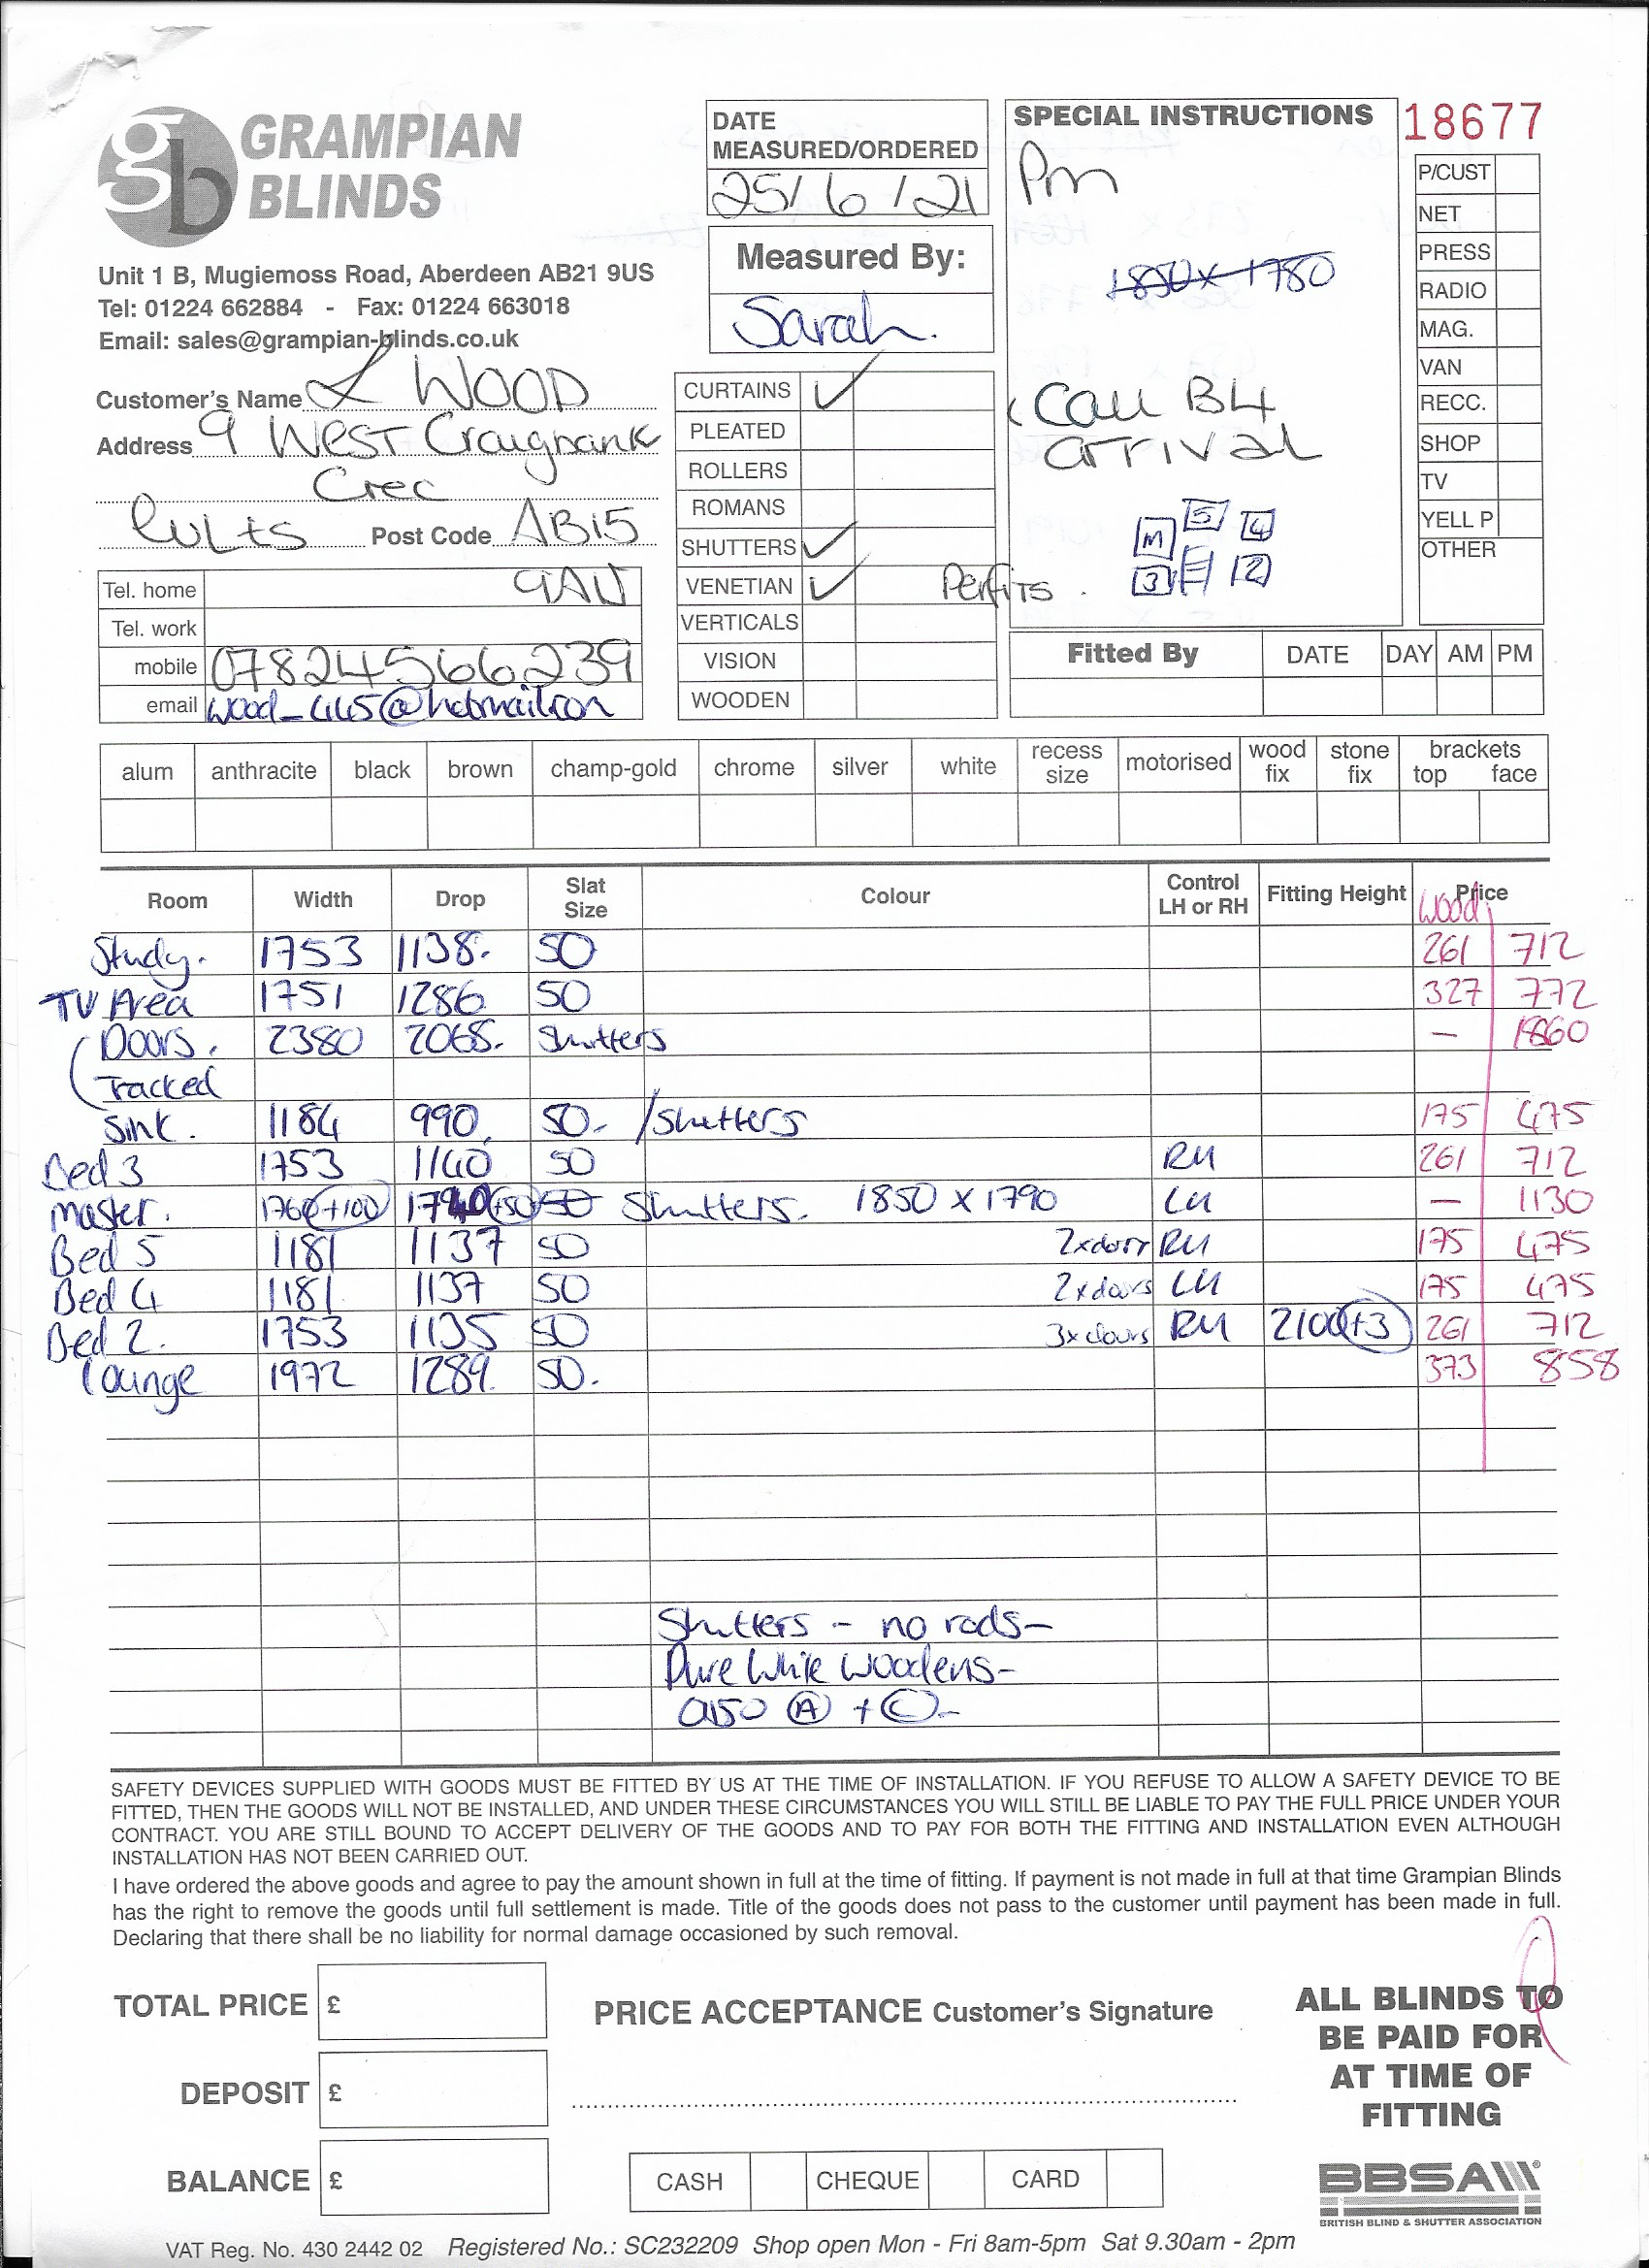 gb GRAMPIAN BLINDS
Unit 1 B, Mugiemoss Road, Aberdeen AB21 9US
Tel: 01224 662884 - Fax: 01224 663018
Email: sales@grampian-blinds.co.uk
Customer's Name L WOOD
Address 9 West Craigbank
Crec
Cults Post Code AB15
Tel. home 9AU
Tel. work
mobile 07824566239
email wood_445@hotmail.com
DATE MEASURED/ORDERED
25/6/21
Measured By:
Sarah.
CURTAINS ✓
PLEATED
ROLLERS
ROMANS
SHUTTERS ✓
VENETIAN ✓ Perfits.
VERTICALS
VISION
WOODEN
SPECIAL INSTRUCTIONS
Pm
1850 x 1780
Call B4
arrival
M 5 4
3 2
18677
P/CUST
NET
PRESS
RADIO
MAG.
VAN
RECC.
SHOP
TV
YELL P
OTHER
Fitted By DATE DAY AM PM
alum anthracite black brown champ-gold chrome silver white recess size motorised wood fix stone fix brackets top face
Room Width Drop Slat Size Colour Control LH or RH Fitting Height Price
Wood
Study. 1753 1138. 50 261 712
TV Area 1751 1286 50 327 772
Doors. 2380 2068. Shutters — 1860
Tracked
Sink. 1184 990 50. /Shutters 175 475
Bed 3 1753 1140 50 RH 261 712
Master. 1760 +100 1740 +50 50 Shutters. 1850 x 1790 LH — 1130
Bed 5 1181 1137 50 2xdoors RH 175 475
Bed 4 1181 1137 50 2xdoors LH 175 475
Bed 2. 1753 1135 50 3xdoors RH 2100 +3 261 712
Lounge 1972 1289. 50. 373 858
Shutters - no rods-
Pure White Woodens-
also A + C-
SAFETY DEVICES SUPPLIED WITH GOODS MUST BE FITTED BY US AT THE TIME OF INSTALLATION. IF YOU REFUSE TO ALLOW A SAFETY DEVICE TO BE
FITTED, THEN THE GOODS WILL NOT BE INSTALLED, AND UNDER THESE CIRCUMSTANCES YOU WILL STILL BE LIABLE TO PAY THE FULL PRICE UNDER YOUR
CONTRACT. YOU ARE STILL BOUND TO ACCEPT DELIVERY OF THE GOODS AND TO PAY FOR BOTH THE FITTING AND INSTALLATION EVEN ALTHOUGH
INSTALLATION HAS NOT BEEN CARRIED OUT.
I have ordered the above goods and agree to pay the amount shown in full at the time of fitting. If payment is not made in full at that time Grampian Blinds
has the right to remove the goods until full settlement is made. Title of the goods does not pass to the customer until payment has been made in full.
Declaring that there shall be no liability for normal damage occasioned by such removal.
TOTAL PRICE £
DEPOSIT £
BALANCE £
PRICE ACCEPTANCE Customer's Signature
CASH CHEQUE CARD
ALL BLINDS TO
BE PAID FOR
AT TIME OF
FITTING
BBSA
BRITISH BLIND & SHUTTER ASSOCIATION
VAT Reg. No. 430 2442 02 Registered No.: SC232209 Shop open Mon - Fri 8am-5pm Sat 9.30am - 2pm